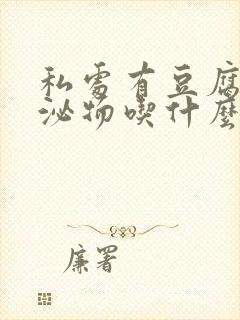 私處有豆腐
泌物喫什麼
廉署